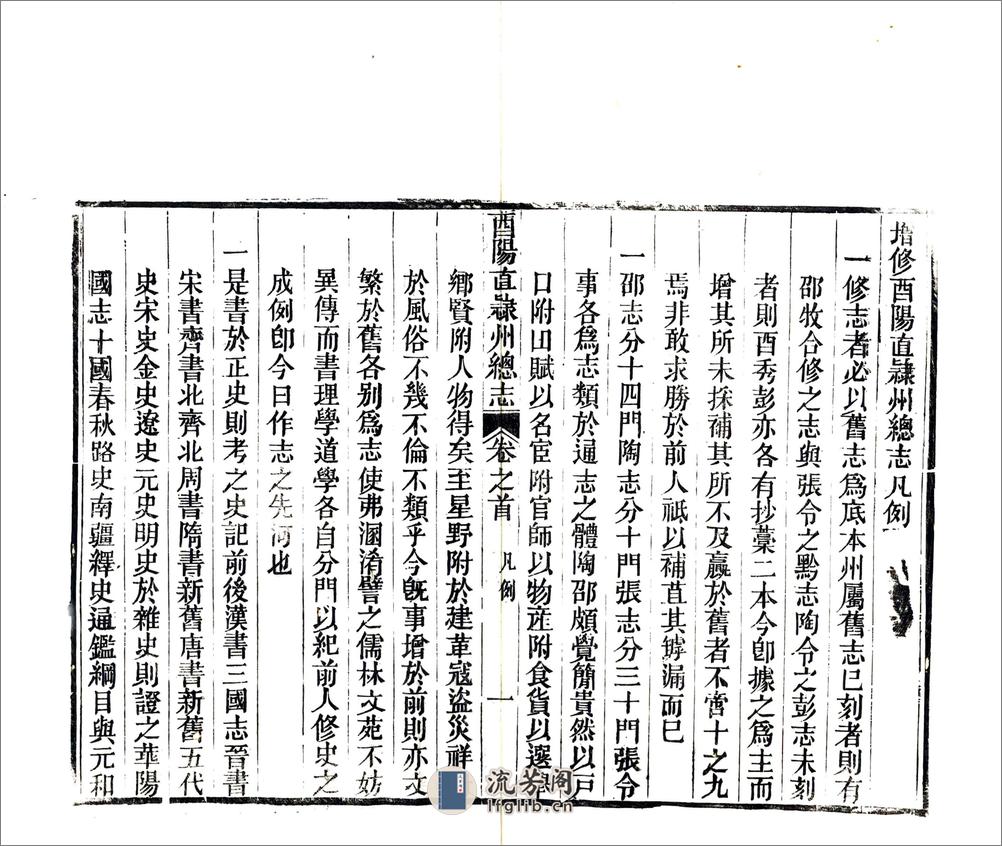 增修酉陽直隸州總志凡例
一修志者必以舊志爲底本州屬舊志已刻者則有
邵牧合修之志與張令之黔志陶令之彭志未刻
者則酉秀彭亦各有抄藁二本今卽據之爲主而
增其所未採補其所不及贏於舊者不啻十之九
焉非敢求勝於前人祗以補苴其罅漏而已
一邵志分十四門陶志分十門張志分三十門張令
事各爲志類於通志之體陶邵頗覺簡貴然以戸
口附田賦以名宦附官師以物産附食貨以選舉
酉陽直隸州總志
卷之首
凡例
一
鄉賢附人物得矣至星野附於建革寇盜災祥
於風俗不幾不倫不類乎今旣事增於前則亦文
繁於舊各别爲志使弗溷淆譬之儒林文苑不妨
異傳而書理學道學各自分門以紀前人修史之
成例卽今日作志之先河也
一是書於正史則考之史記前後漢書三國志晉書
宋書齊書北齊北周書隋書新舊唐書新舊五代
史宋史金史遼史元史明史於雜史則證之華陽
國志十國春秋路史南疆繹史通鑑綱目與元和
流芳阁
lfglib.cn